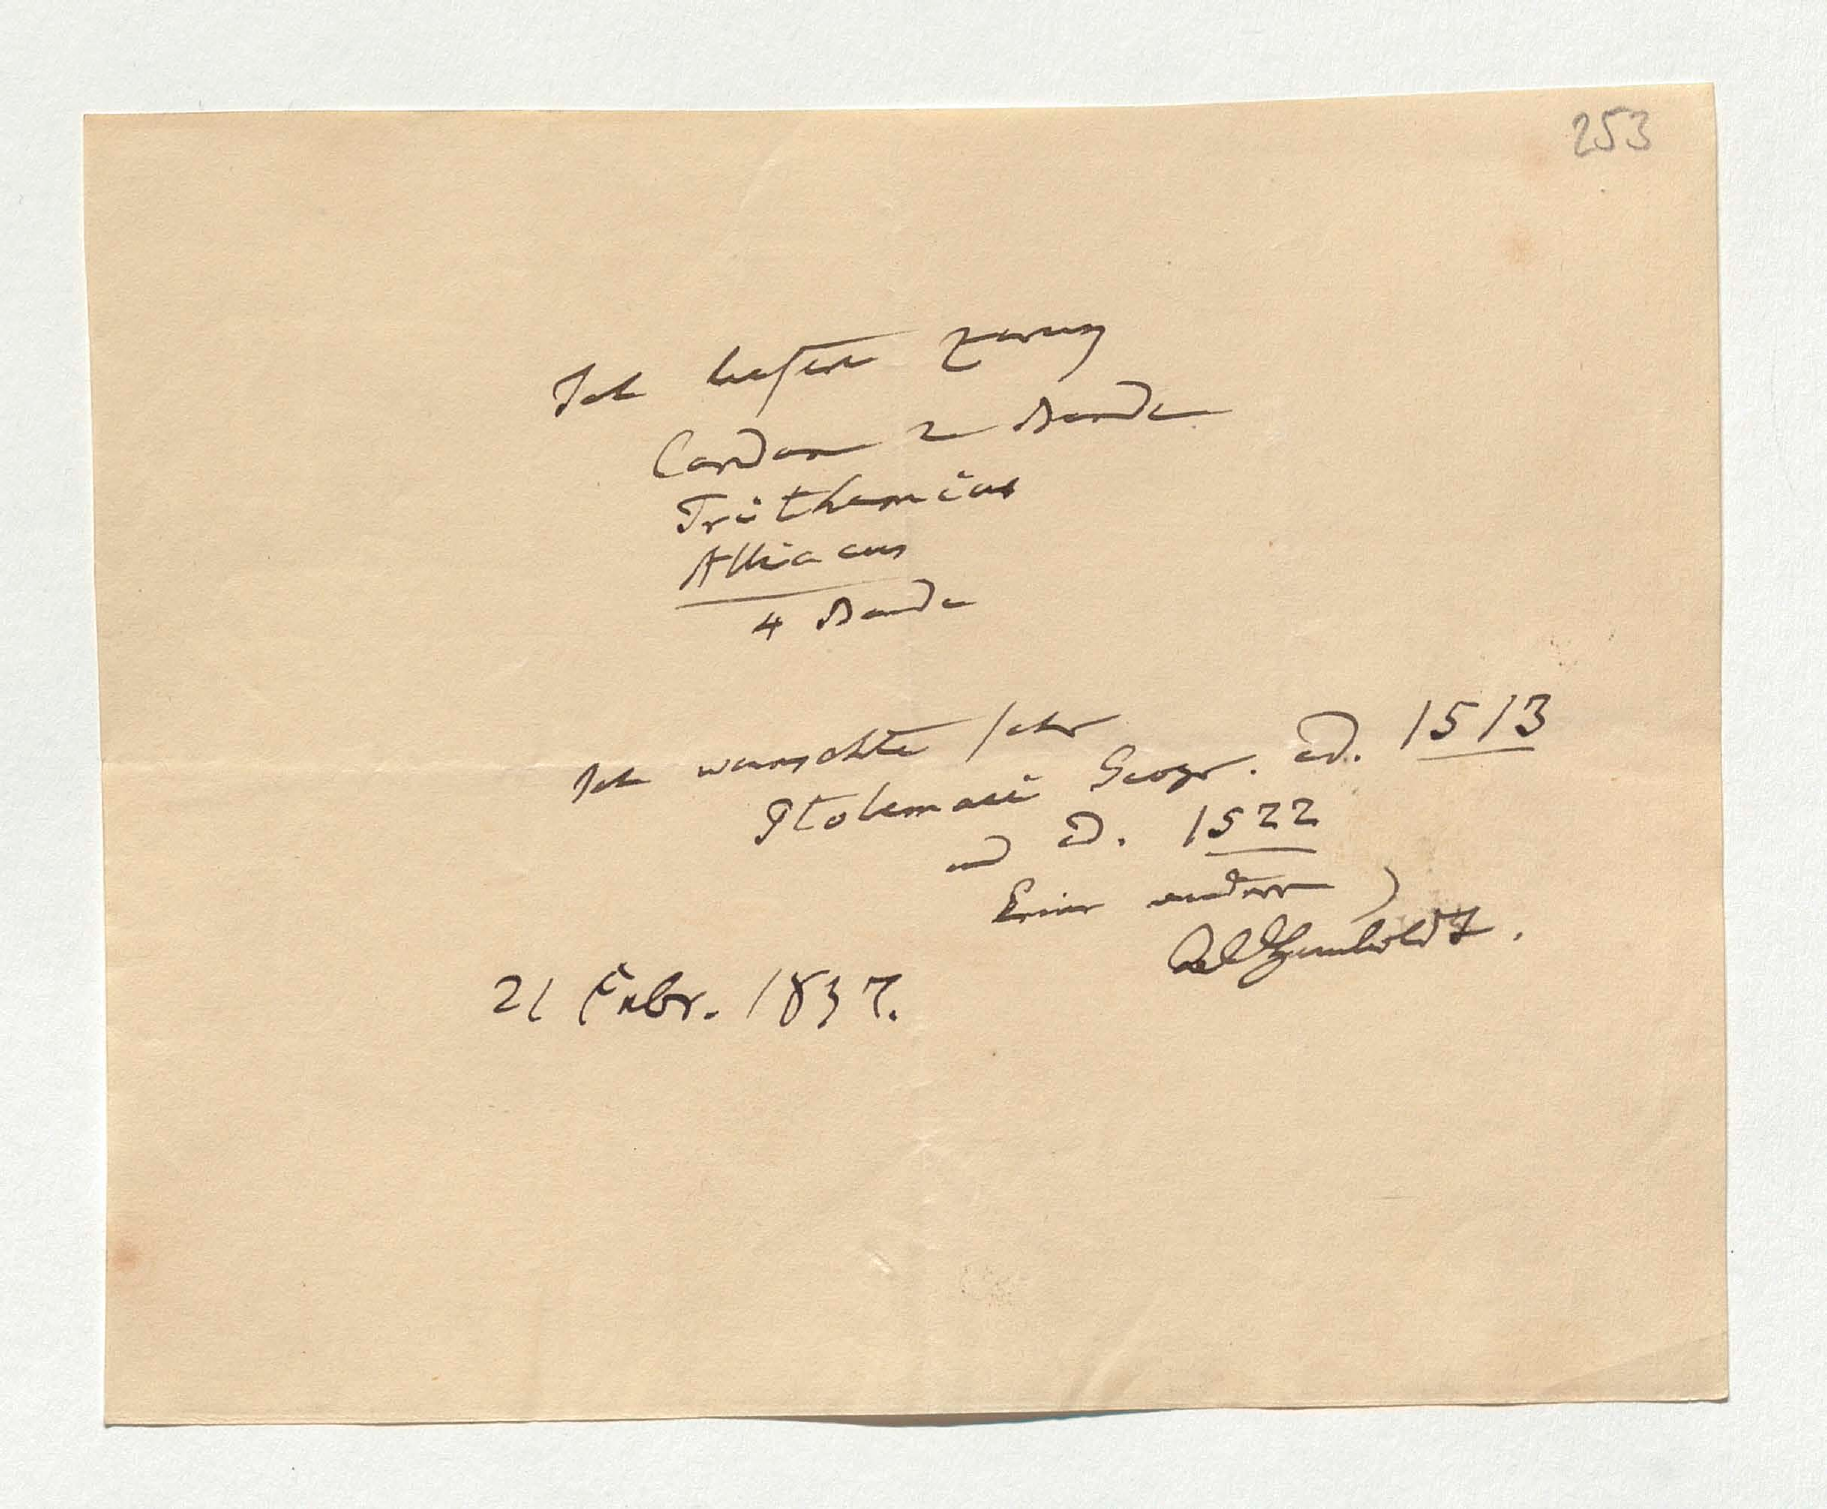 253
Ich liefere zurück
Cardan 2 Bände
Trithemius
Alliacus
4 Bände
Ich wünschte sehr
Ptolemaei Geogr. ed. 1513
und ed. 1522
keine andere)
AlHumboldt.
21 Febr. 1837.